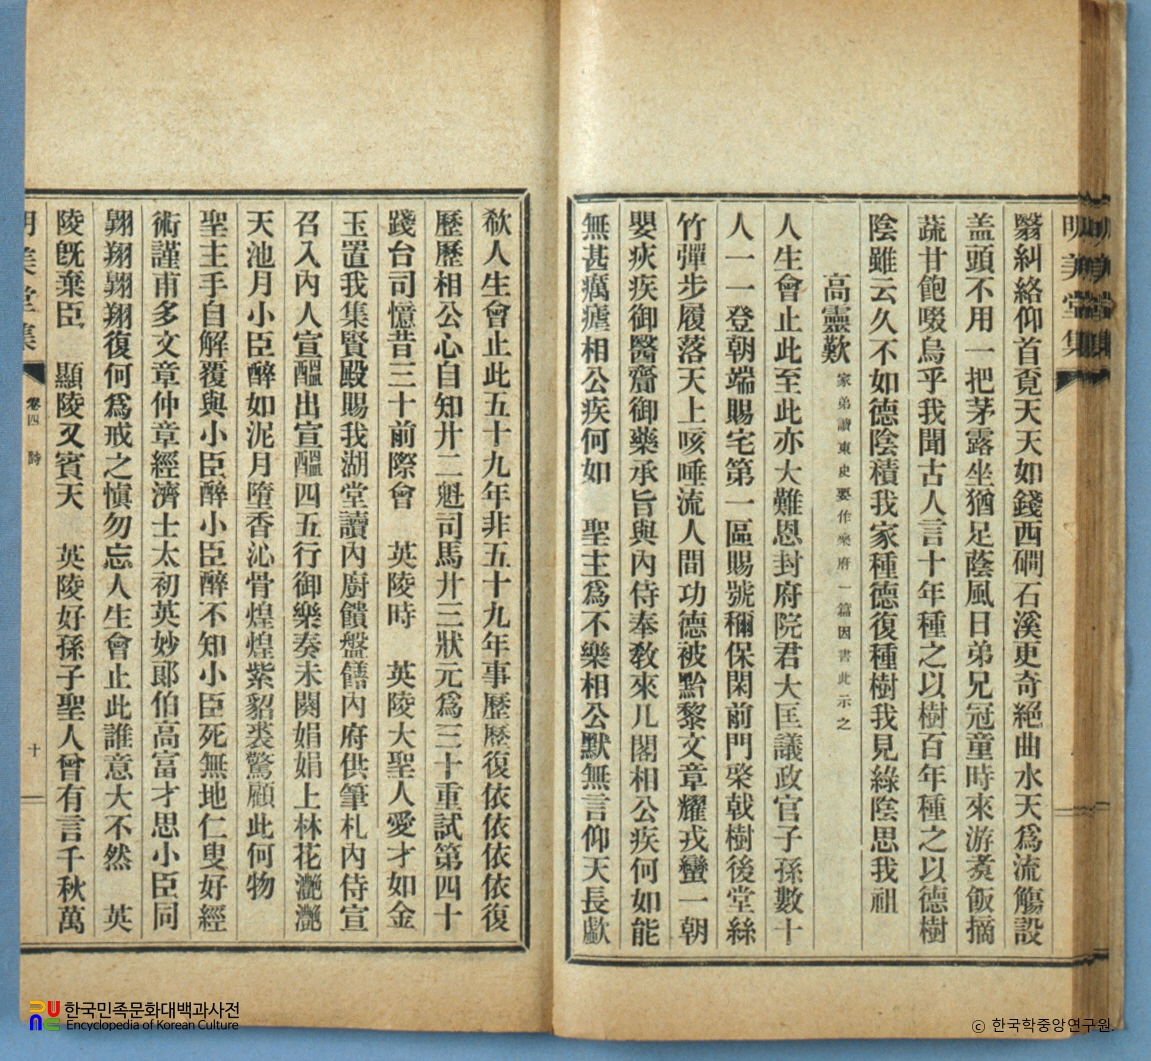 明美堂集
翳糾絡仰首覔天天如錢西磵石溪更奇絕曲水天爲流觴設
盖頭不用一把茅露坐猶足蔭風日弟兄冠童時來游煑飯摘
蔬甘飽啜烏乎我聞古人言十年種之以樹百年種之以德樹
陰雖云久不如德陰積我家種德復種樹我見綠陰思我祖
高靈歎 家弟讀東史要作樂府一篇因書此示之
人生會止此至此亦大難恩封府院君大匡議政官子孫數十
人一一登朝端賜宅第一區賜號稱保閑前門棨戟樹後堂絲
竹彈步履落天上咳唾流人間功德被黔黎文章耀戎蠻一朝
嬰疢疾御醫齎御藥承旨與內侍奉敎來儿閣相公疾何如能
無甚癘瘧相公疾何如 聖主爲不樂相公默無言仰天長歔
欷人生會止此五十九年非五十九年事歷歷復依依依依復
歷歷相公心自知廾二魁司馬廾三狀元爲三十重試第四十
踐台司憶昔三十前際會 英陵時 英陵大聖人愛才如金
玉置我集賢殿賜我湖堂讀內廚饋盤饍內府供筆札內侍宣
召入內人宣醞出宣醞四五行御樂奏未闋娟娟上林花灔灔
天池月小臣醉如泥月墮香沁骨煌煌紫貂裘驚顧此何物
聖主手自解覆與小臣醉小臣醉不知小臣死無地仁叟好經
術謹甫多文章仲章經濟士太初英妙郞伯高富才思小臣同
翺翔翺翔復何爲戒之愼勿忘人生會止此誰意大不然 英
陵旣棄臣 顯陵又賓天 英陵好孫子聖人曾有言千秋萬
明美堂集 卷四 詩 十
한국민족문화대백과사전
Encyclopedia of Korean Culture
ⓒ 한국학중앙연구원.